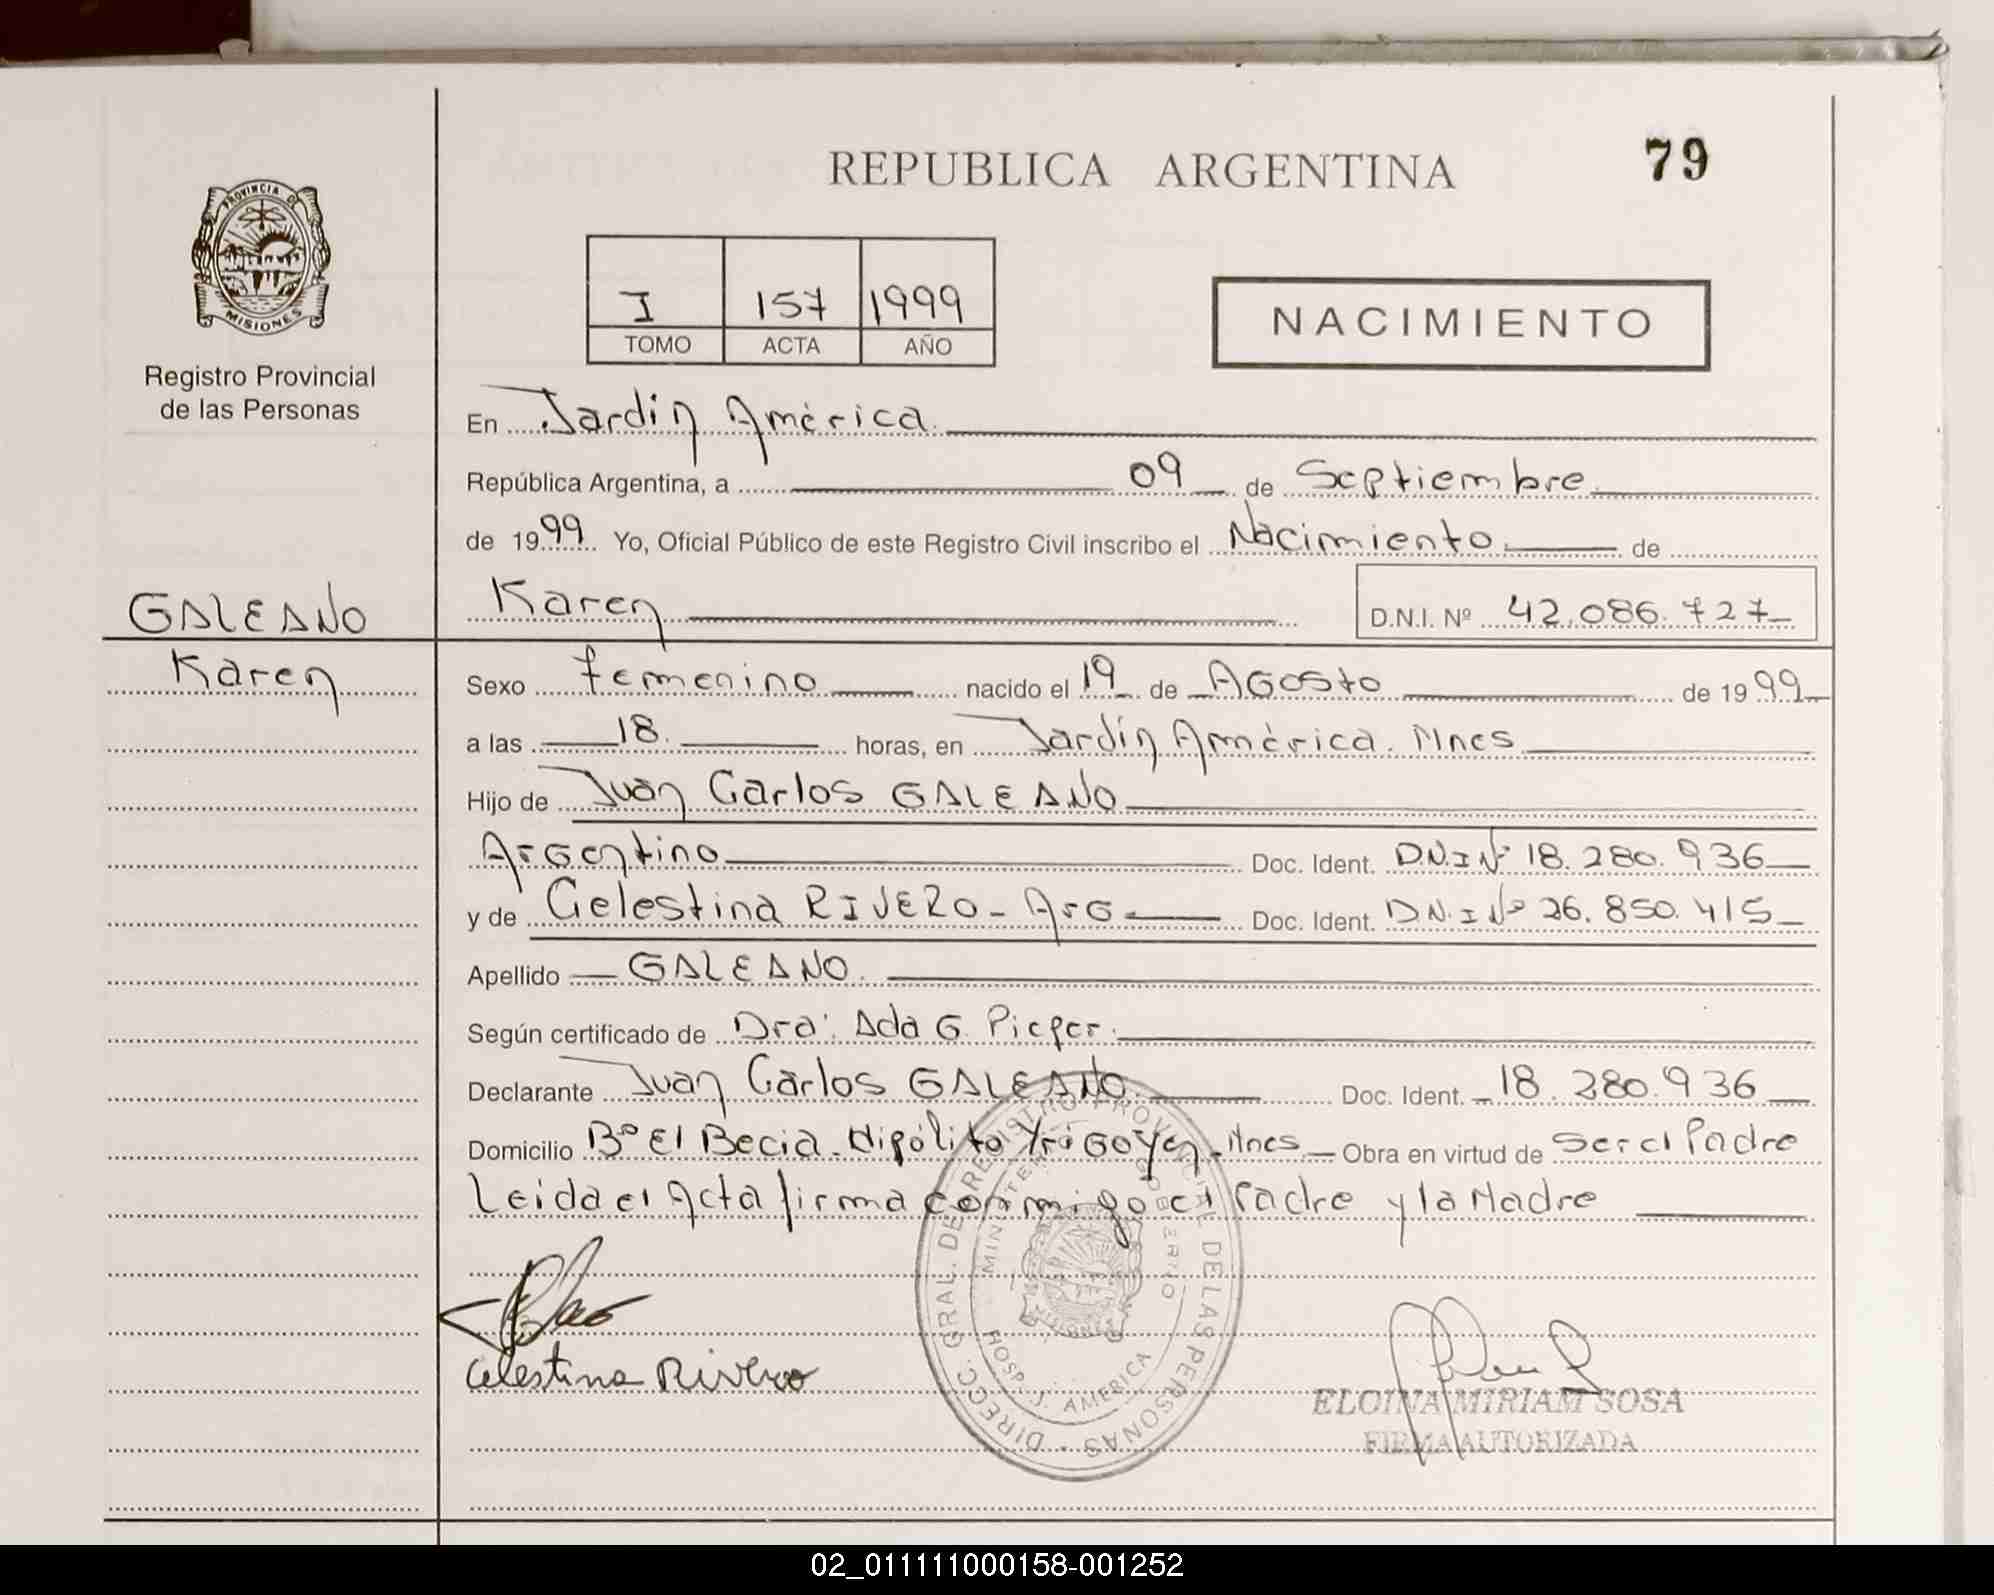 REPUBLICA ARGENTINA
79
PROVINCIA DE
MISIONES
Registro Provincial
de las Personas
I 157 1999
TOMO ACTA AÑO
NACIMIENTO
En Jardín América
República Argentina, a 09 de Septiembre
de 1999 Yo, Oficial Público de este Registro Civil inscribo el Nacimiento de
GALEANO
Karen
Karen D.N.I. Nº 42.086.727
Sexo femenino nacido el 19 de Agosto de 1999
a las 18. horas, en Jardín América. Mnes
Hijo de Juan Carlos GALEANO
Argentino Doc. Ident. D.N.I Nº 18.280.936
y de Celestina RIVERO - Arg. Doc. Ident. D.N.I Nº 26.850.415
Apellido GALEANO.
Según certificado de Dra: Ada G. Pieper.
Declarante Juan Carlos GALEANO. Doc. Ident. 18.280.936
Domicilio Bº El Becia - Hipólito Yrigoyen - Mnes - Obra en virtud de ser el Padre
Leida el Acta firma conmigo el Padre y la Madre
Celestina Rivero
DIRECC. GRAL. DEL REGISTRO PROVINCIAL DE LAS PERSONAS
GOBIERNO
HOSP. J. AMERICA
MISIONES
ELOINA MIRIAM SOSA
FIRMA AUTORIZADA
02_011111000158-001252